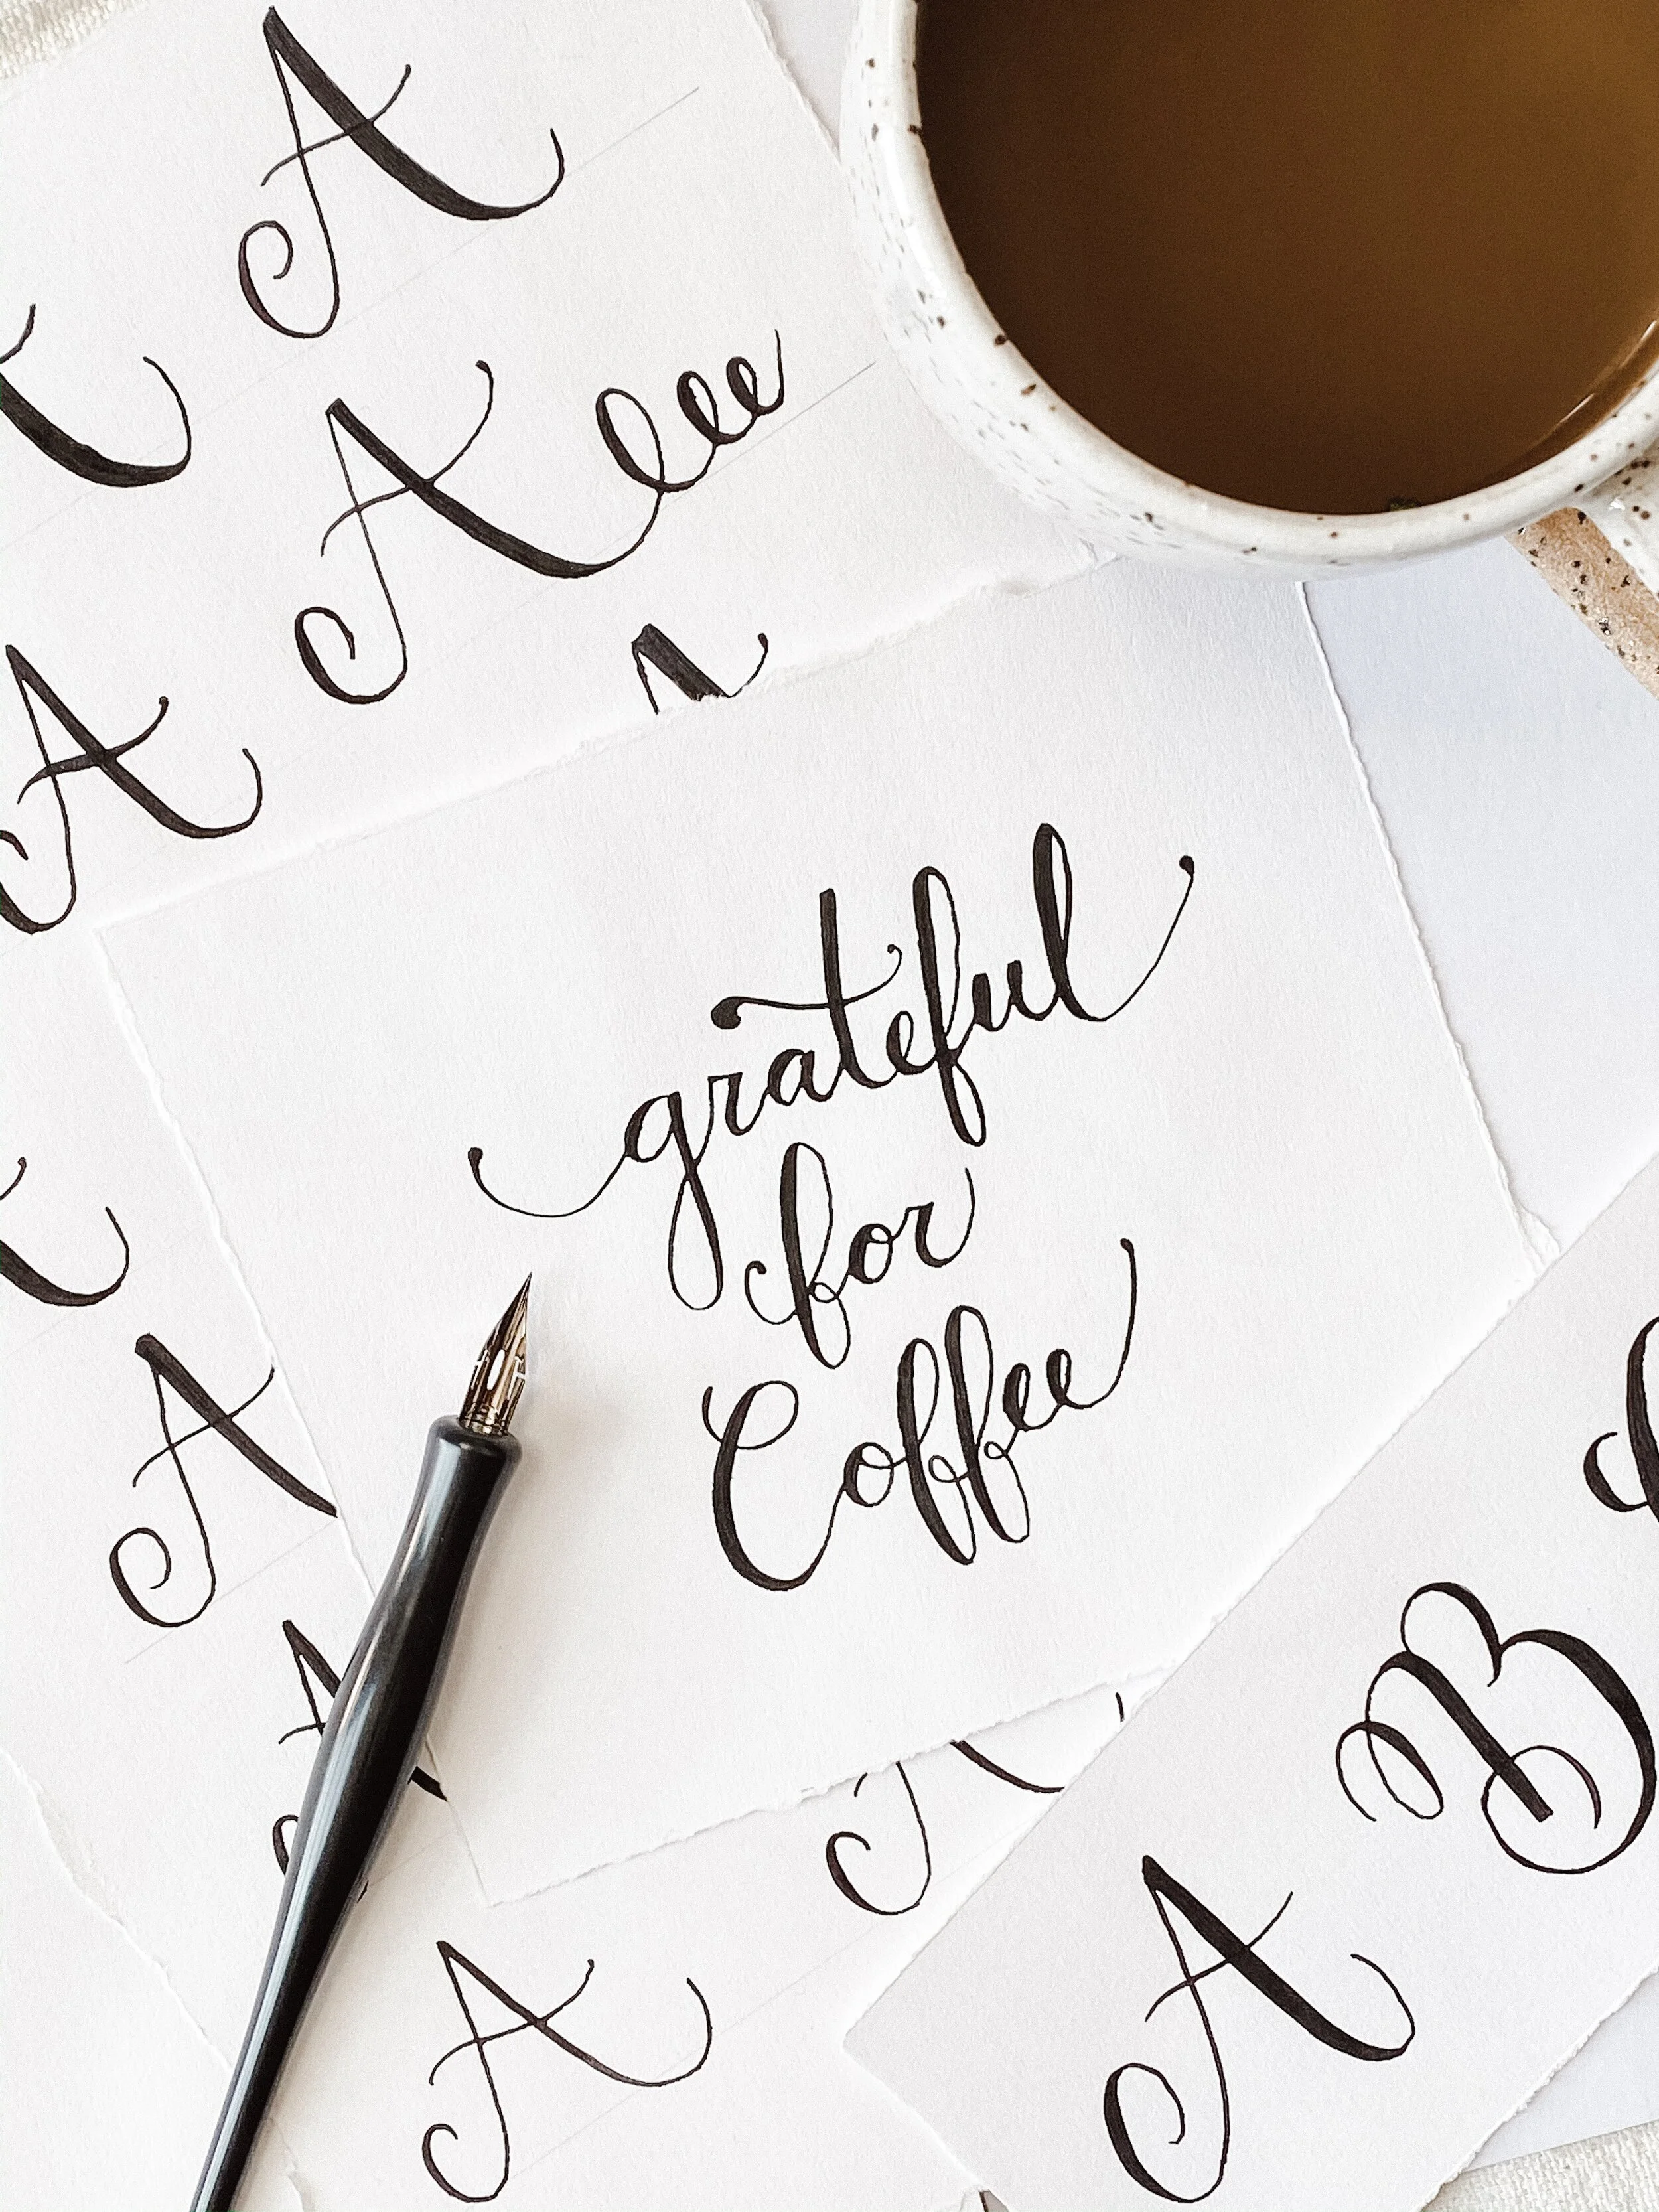 A
A eee
A
grateful
for
Coffee
A
A
B
A
A